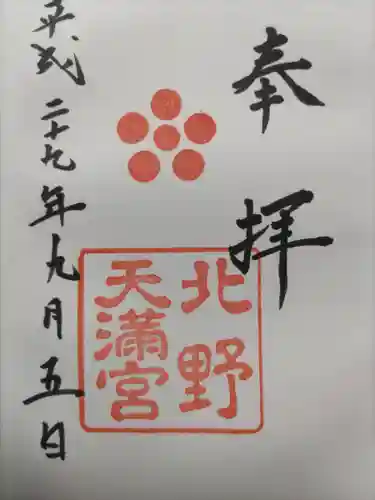 奉拝
北野
天満宮
平成二十九年九月五日